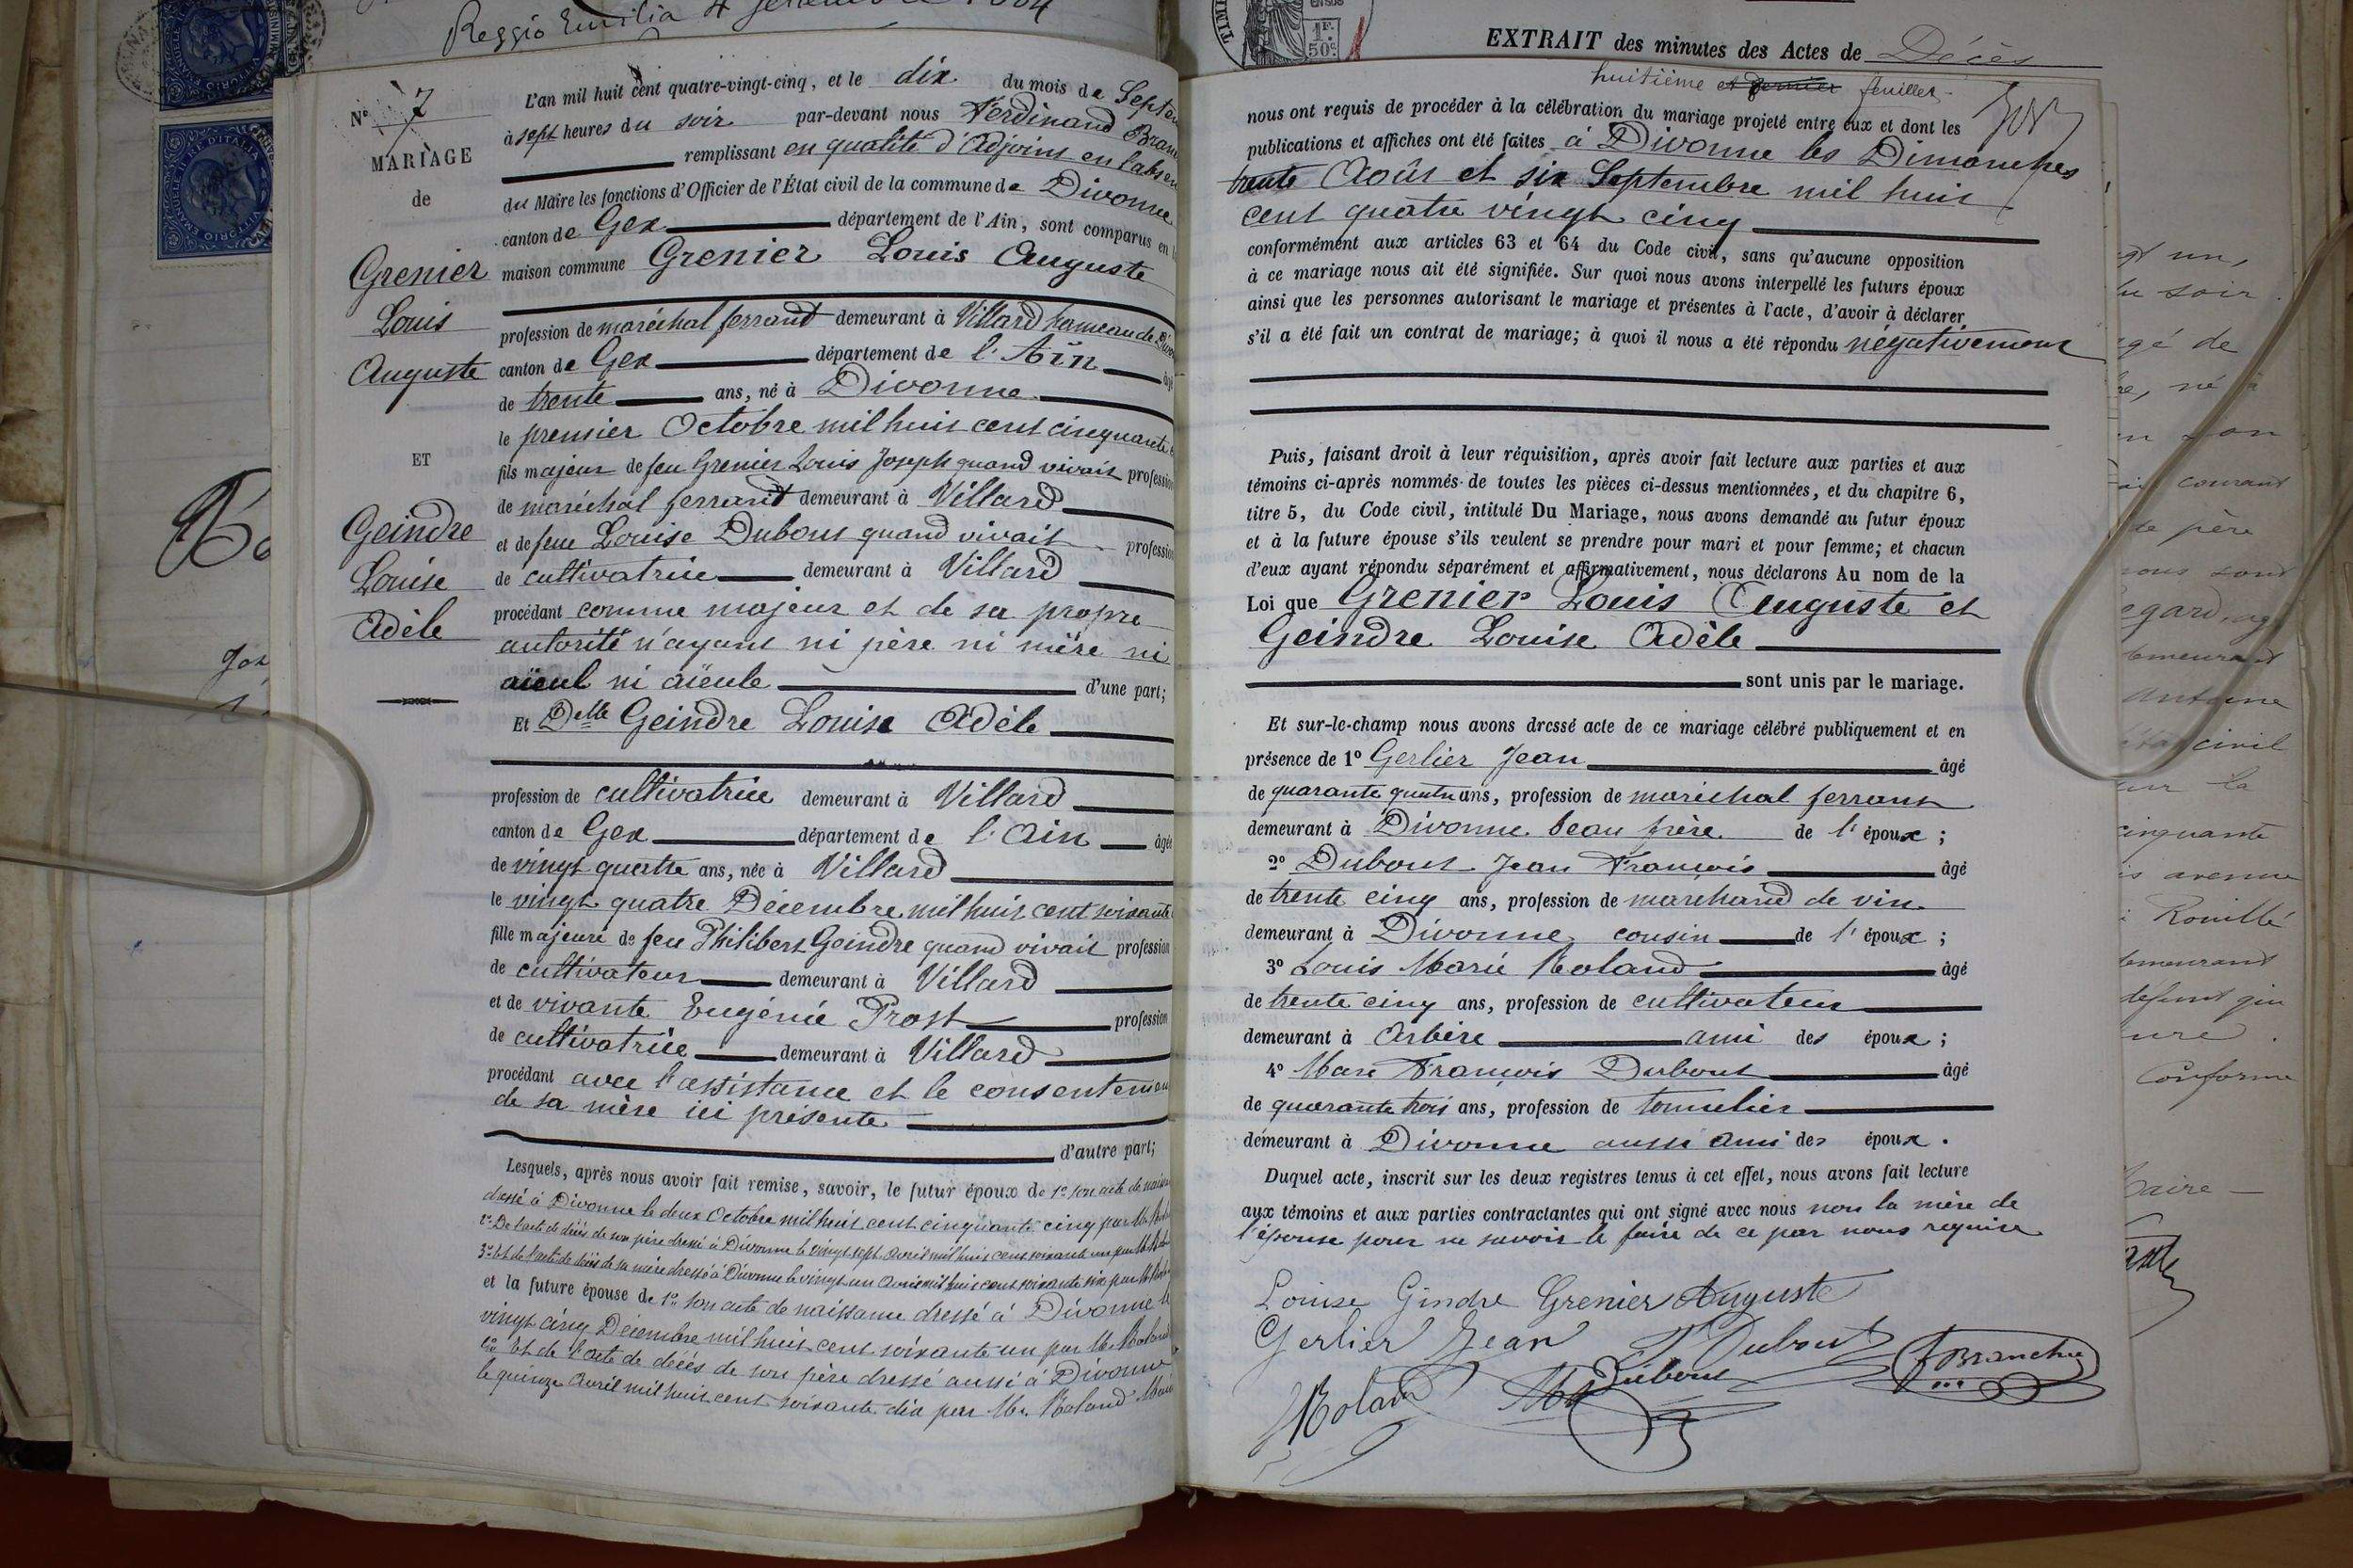 Reggio Emilia 4
N° 7
MARIAGE
de
Grenier
Louis
Auguste
ET
Geindre
Louise
Adèle
L'an mil huit cent quatre-vingt-cinq, et le dix du mois de
à sept heures du soir par-devant nous Ferdinand
remplissant en qualité d'Adjoint en
du Maire les fonctions d'Officier de l'État civil de la commune de Divonne
canton de Gex département de l'Ain, sont comparus en
maison commune Grenier Louis Auguste
profession de maréchal ferrant demeurant à Villard hameau de
canton de Gex département de l'Ain
de trente ans, né à Divonne
le premier Octobre mil huit cent cinquante
fils majeur de feu Grenier Louis Joseph quand vivait profession
de maréchal ferrant demeurant à Villard
et de feue Louise Dubout quand vivait profession
de cultivatrice demeurant à Villard
procédant comme majeur et de sa propre
autorité n'ayant ni père ni mère ni
aïeul ni aïeule d'une part;
Et Delle Geindre Louise Adèle
profession de cultivatrice demeurant à Villard
canton de Gex département de l'Ain âgée
de vingt quatre ans, née à Villard
le vingt quatre Décembre mil huit cent soixante
fille majeure de feu Philibert Geindre quand vivait profession
de cultivateur demeurant à Villard
et de vivante Eugénie Prost profession
de cultivatrice demeurant à Villard
procédant avec l'assistance et le
de sa mère ici présente
d'autre part;
Lesquels, après nous avoir fait remise, savoir, le futur époux de 1° son acte de
dressé à Divonne le deux Octobre mil huit cent cinquante cinq par Mr
2° De l'acte de décès de son père dressé à Divonne le vingt sept Avril mil huit cent soixante un par Mr
3° Et de l'acte de décès de sa mère dressé à Divonne le vingt un Avril mil huit cent soixante six par Mr
et la future épouse de 1° son acte de naissance dressé à Divonne le
vingt cinq Décembre mil huit cent soixante un par Mr Roland
2° Et de l'acte de décès de son père dressé aussi à Divonne
le quinze Avril mil huit cent soixante dix par Mr Roland
EXTRAIT des minutes des Actes de Décès
huitième et dernier feuillet
nous ont requis de procéder à la célébration du mariage projeté entre eux et dont les
publications et affiches ont été faites à Divonne les Dimanches
trente Août et six Septembre mil huit
cent quatre vingt cinq
conformément aux articles 63 et 64 du Code civil, sans qu'aucune opposition
à ce mariage nous ait été signifiée. Sur quoi nous avons interpellé les futurs époux
ainsi que les personnes autorisant le mariage et présentes à l'acte, d'avoir à déclarer
s'il a été fait un contrat de mariage; à quoi il nous a été répondu négativement
Puis, faisant droit à leur réquisition, après avoir fait lecture aux parties et aux
témoins ci-après nommés de toutes les pièces ci-dessus mentionnées, et du chapitre 6,
titre 5, du Code civil, intitulé Du Mariage, nous avons demandé au futur époux
et à la future épouse s'ils veulent se prendre pour mari et pour femme; et chacun
d'eux ayant répondu séparément et affirmativement, nous déclarons Au nom de la
Loi que Grenier Louis Auguste et
Geindre Louise Adèle
sont unis par le mariage.
Et sur-le-champ nous avons drcssé acte de ce mariage célébré publiquement et en
présence de 1° Gerlier Jean âgé
de quarante quatre ans, profession de maréchal ferrant
demeurant à Divonne beau frère de l'époux;
2° Dubout Jean François âgé
de trente cinq ans, profession de marchand de vin
demeurant à Divonne cousin de l'époux;
3° Louis Marie Roland âgé
de trente cinq ans, profession de cultivateur
demeurant à Arbère ami des époux;
4° Marc François Dubout âgé
de quarante trois ans, profession de tonnelier
demeurant à Divonne aussi ami des époux.
Duquel acte, inscrit sur les deux registres tenus à cet effet, nous avons fait lecture
aux témoins et aux parties contractantes qui ont signé avec nous non la mère de
l'épouse pour ne savoir le faire de ce par nous requise
Louise Gindre Grenier Auguste
Gerlier Jean Dubout
Dubout Branchu
Roland
du soir
né à
courant
père
demeurant
Antoine
civil
sur la
cinquante
avenue
Rouillé
demeurant
Conforme